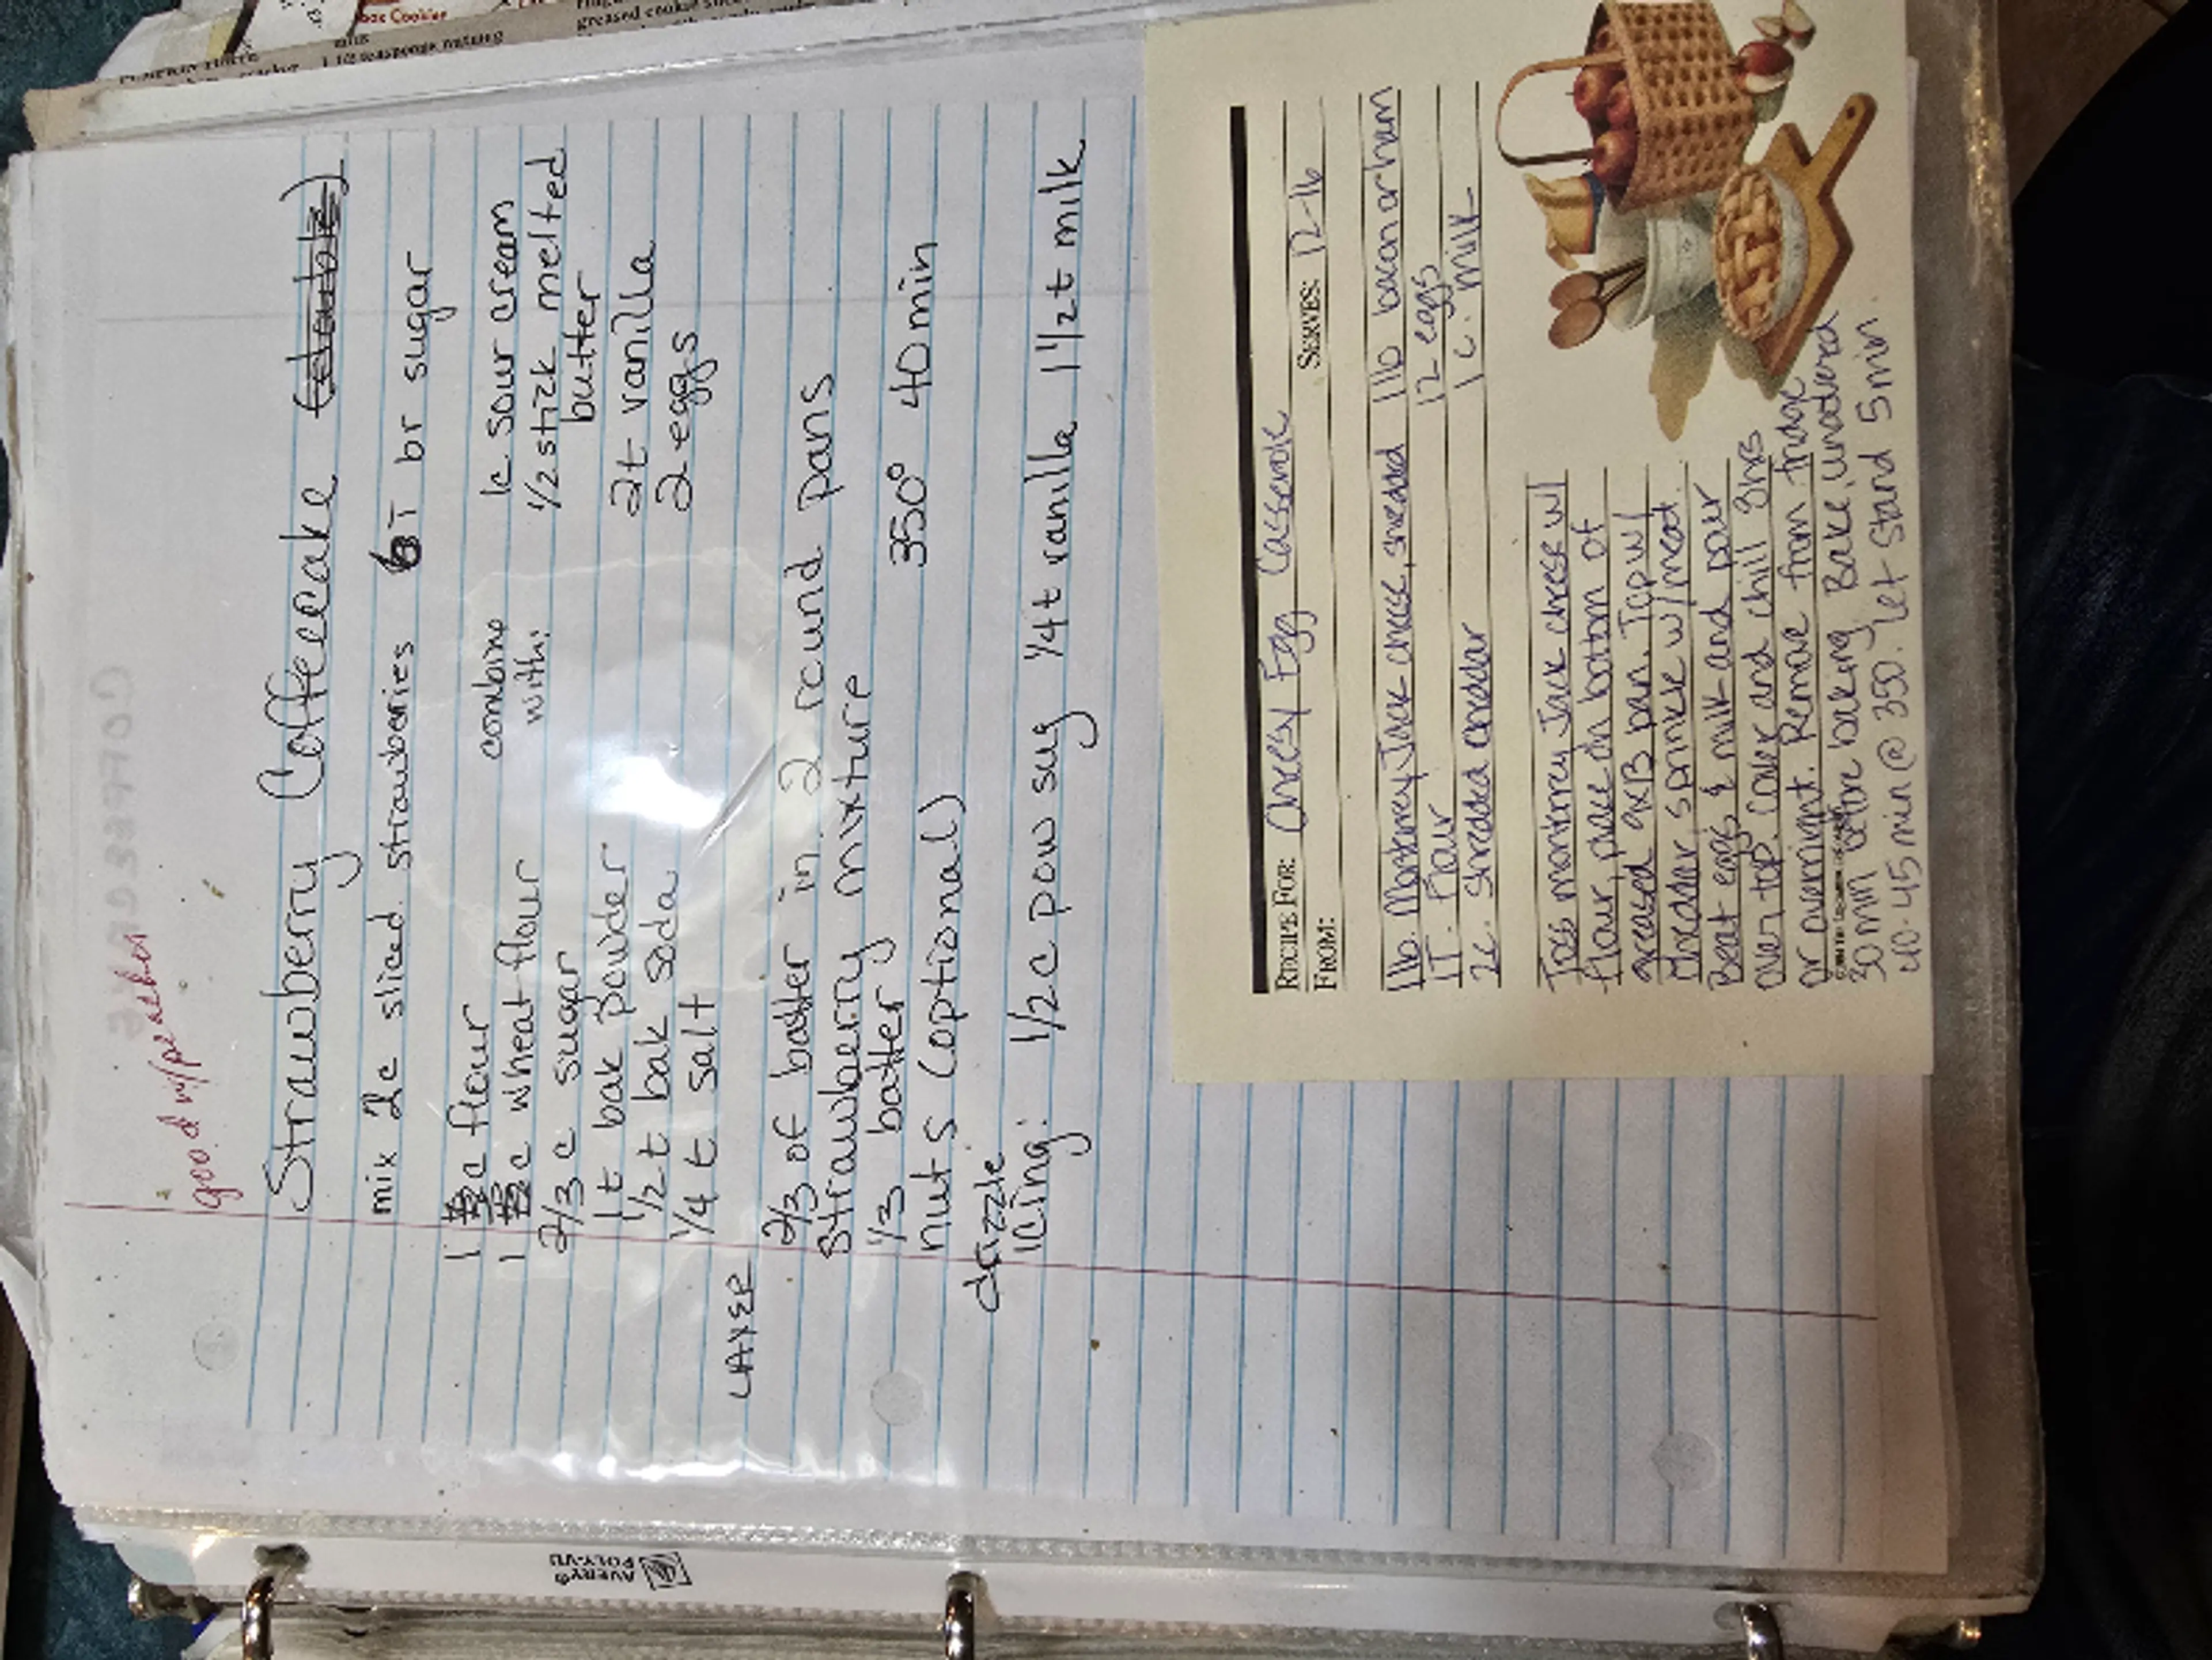 good w/peaches
Strawberry Coffeecake (double)
mix 2c sliced strawberries 6T br sugar
1 c flour
1 c wheat flour
2/3 c sugar
1t bak powder
1/2 t bak soda
1/4 t salt
combine
with:
1c sour cream
1/2 stick melted
butter
2t vanilla
2 eggs
LAYER
2/3 of batter in 2 round pans
strawberry mixture
1/3 batter 350° 40 min
nuts (optional)
drizzle
icing: 1/2 c pow sug 1/4t vanilla 1 1/2t milk
RECIPE FOR: Cheesy Egg Casserole
FROM: SERVES: 12-16
1lb. Monterey Jack cheese, shredded 1lb bacon or ham
1T. flour 12 eggs
2c. shredded cheddar 1 c. milk
Toss monterey Jack cheese w/
flour, place on bottom of
greased 9x13 pan. Top w/
cheddar, sprinkle w/meat.
Beat eggs & milk and pour
over top. Cover and chill 8hrs
or overnight. Remove from fridge
30 min before baking. Bake, uncovered
40-45 min @ 350. Let stand 5 min
AVERY®
POLY-VU
greased cookie
1 1/2 teaspoons nutmeg
Cookies